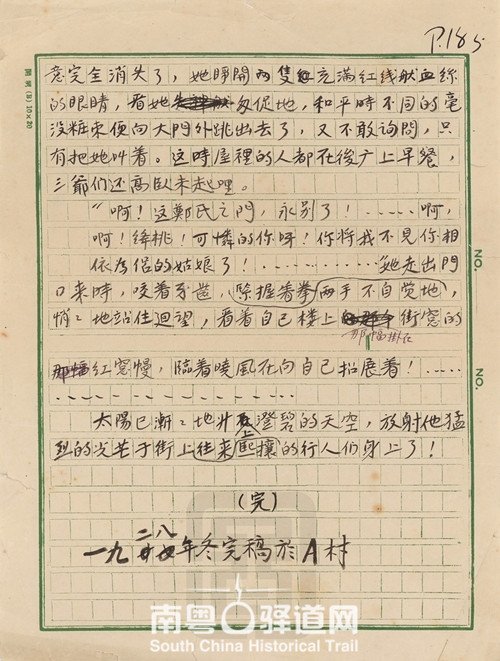 P.185
意完全消失了，她睜開両隻紅充滿红线狀血絲
的眼睛，看她匆促地，和平時不同的毫
没粧束便向大門外跳出去了，又不敢询問，只
有把她叫着。这時屋裡的人都在後厅上早餐，
三爺们还高臥未起哩。
“啊！这鄭氏之門，永別了！……啊，
啊！绛桃！可憐的你呀！你将我不見你相
依為侣的姑娘了！…………她走出門
口来時，咬着牙齒，緊握着拳両手不自觉地，
悄々地站住迴望，看着自己楼上街窗的
那幅掛在
那幅红窓幔，臨着曉風在向自己招展着！……
………………
太陽已漸々地升上澄碧的天空，放射他猛
烈的光芒于街上往来熙攘的行人们身上了！
（完）
二八
一九年冬完稿於A村
南粤古驿道网
South China Historical Trail
NO.
NO.